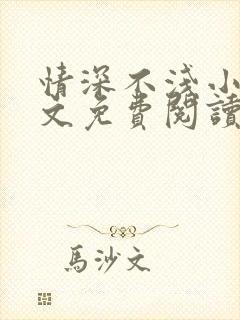 情深不淺小
文免費閱讀
馬沙文